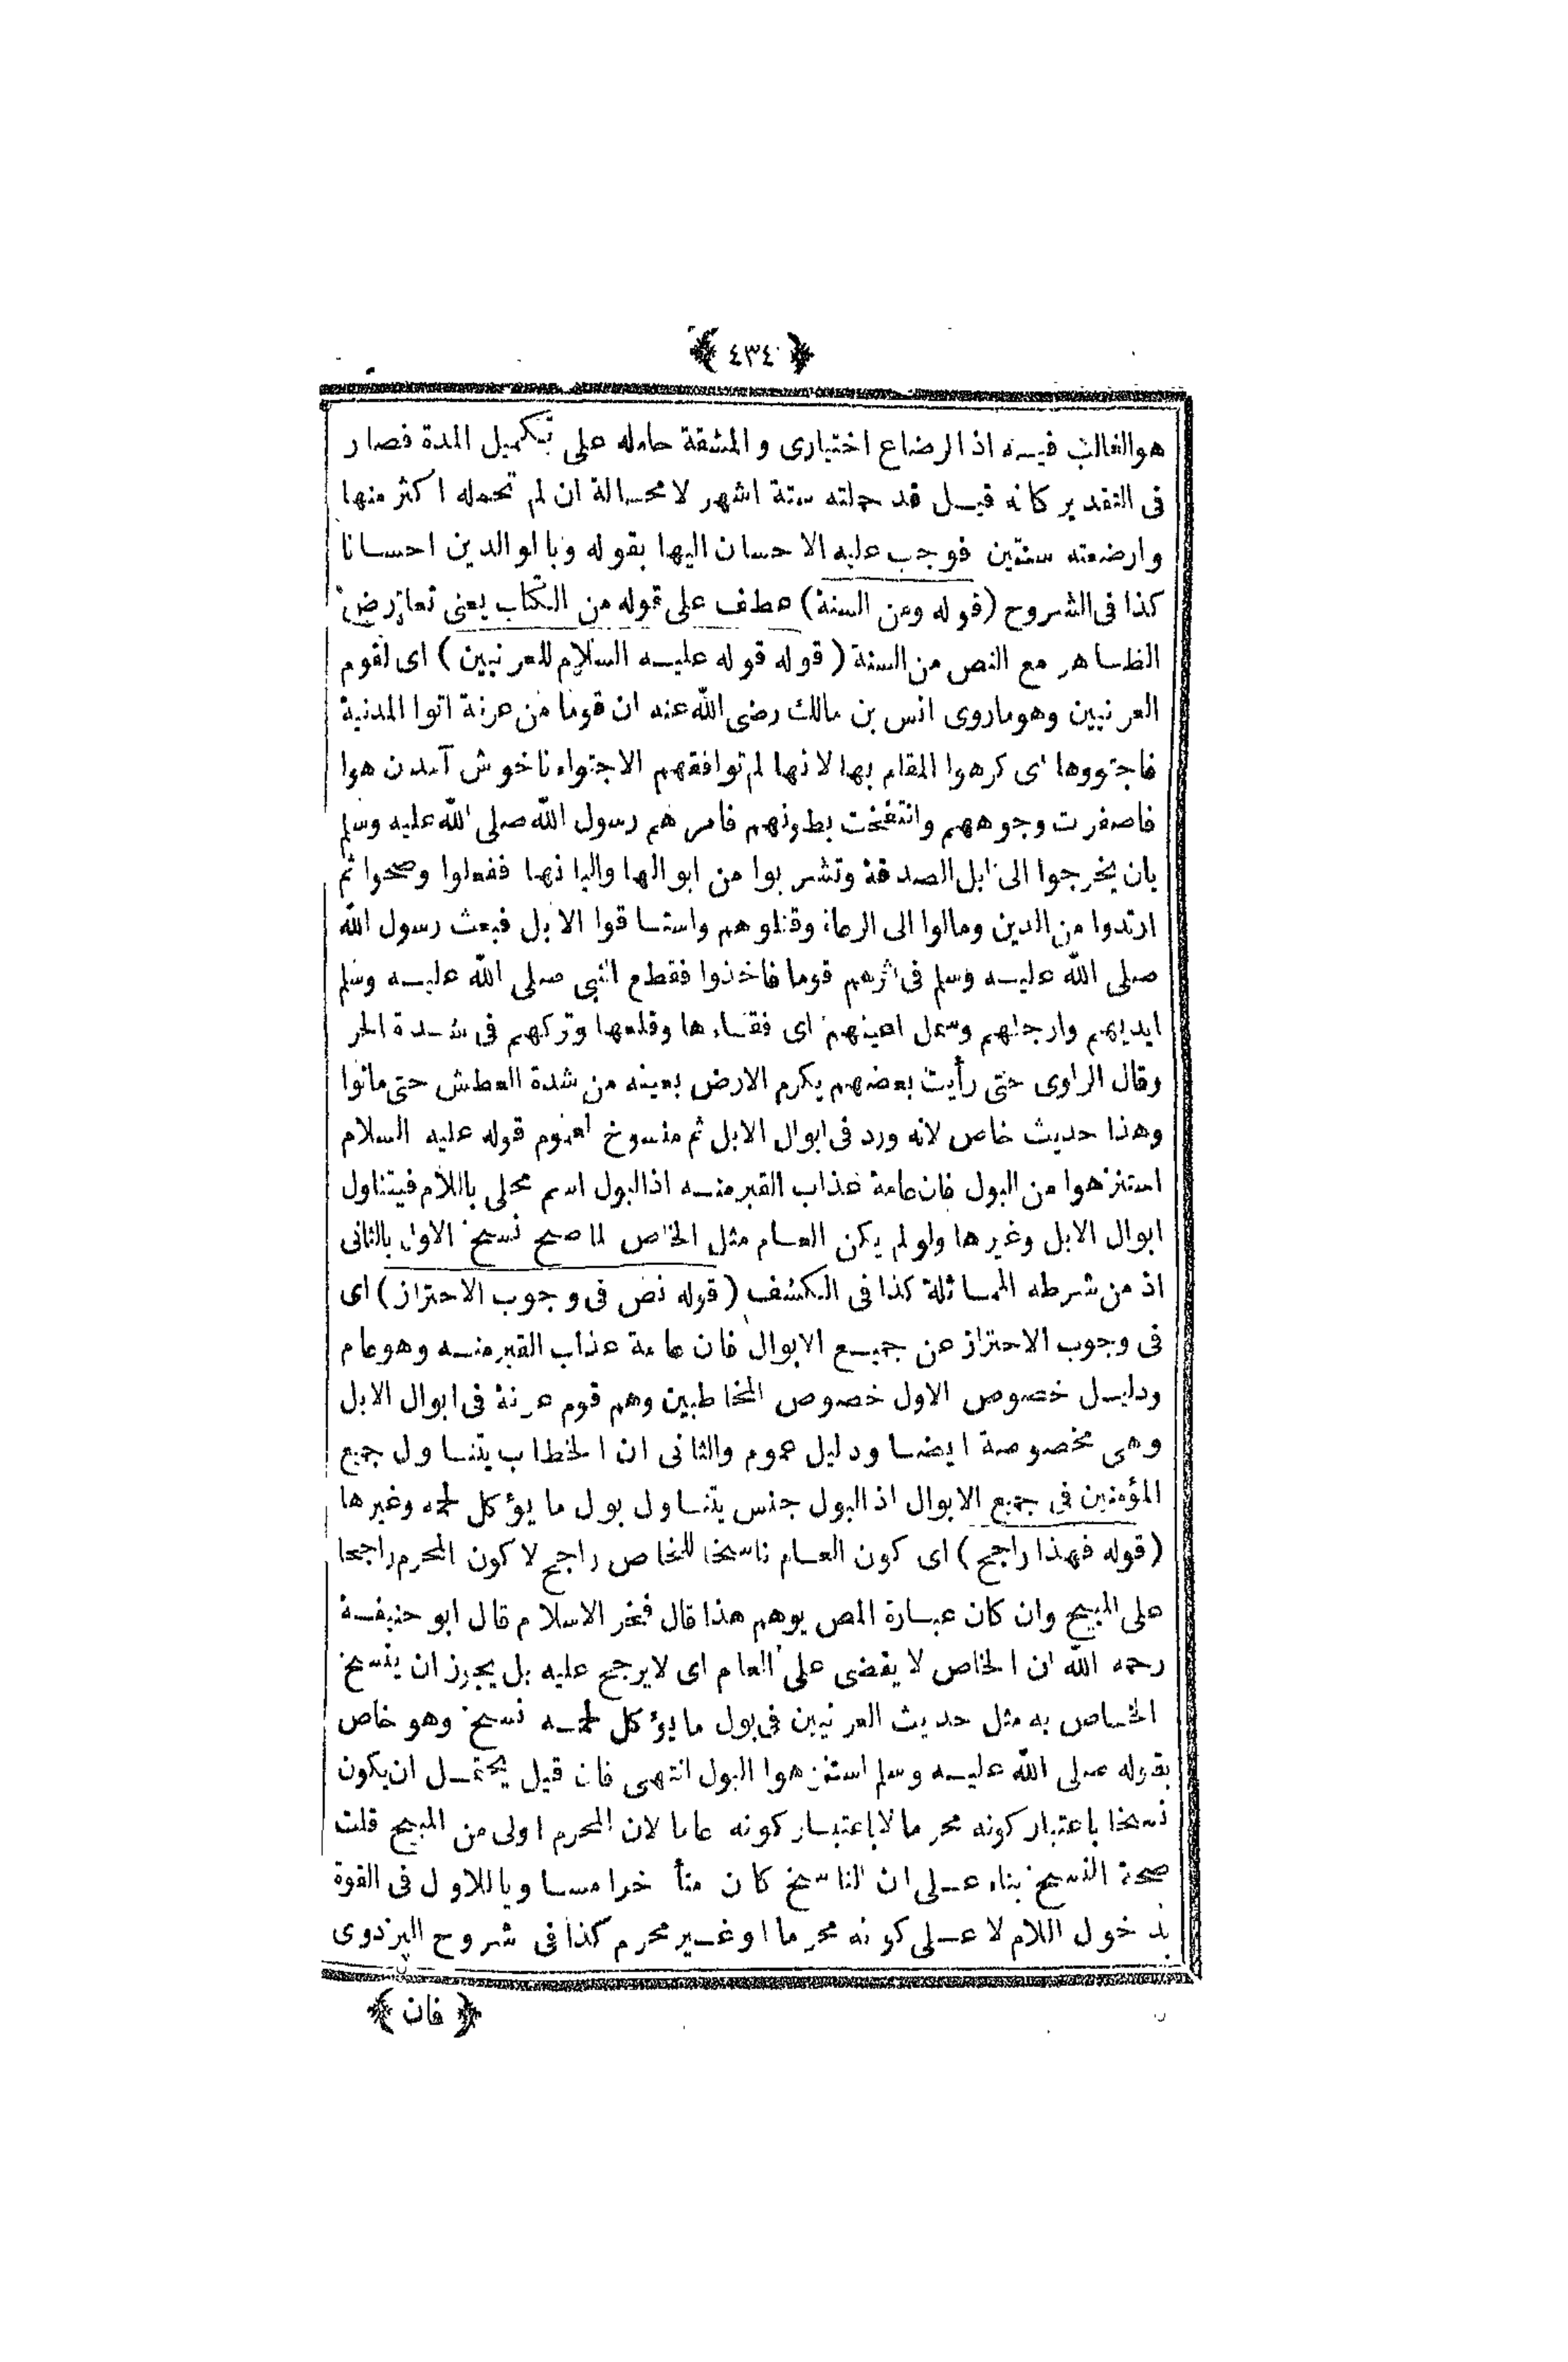 ﴿ ٤٣٤ ﴾
هو الغالب فيه اذ الرضاع اختيارى و المشقة حامله على تكميل المدة فصار
فى التقدير كانه قيل قد حملته ستة اشهر لا محالة ان لم تحمله اكثر منها
وارضعته سنتين فوجب عليه الاحسان اليها بقوله وبالوالدين احسانا
كذا فى الشروح (قوله ومن السنة) عطف على قوله من الكتاب يعنى تعارض
الظاهر مع النص من السنة (قوله قوله عليه السلام للعرنيين) اى لقوم
العرنيين وهو ماروى انس بن مالك رضى الله عنه ان قوما من عرنة اتوا المدنية
فاجتووها اى كرهوا المقام بها لانها لم توافقهم الاجتواء ناخوش آمدن هوا
فاصفرت وجوههم وانتفخت بطونهم فامرهم رسول الله صلى الله عليه وسلم
بان يخرجوا الى ابل الصدقة وتشربوا من ابوالها والبانها ففعلوا وصحوا ثم
ارتدوا من الدين ومالوا الى الرعاة وقتلوهم واستاقوا الابل فبعث رسول الله
صلى الله عليه وسلم فى اثرهم قوما فاخذوا فقطع النبى صلى الله عليه وسلم
ايديهم وارجلهم وسمل اعينهم اى فقاءها وقلعها وتركهم فى شدة الحر
وقال الراوى حتى رأيت بعضهم يكرم الارض بعينه من شدة العطش حتى ماتوا
وهذا حديث خاص لانه ورد فى ابوال الابل ثم منسوخ لعموم قوله عليه السلام
استنزهوا من البول فان عامة عذاب القبر منه اذ البول اسم محلى باللام فيتناول
ابوال الابل وغيرها ولو لم يكن العام مثل الخاص لما صح نسخ الاول بالثانى
اذ من شرطه المماثلة كذا فى الكشف (قوله نص فى وجوب الاحتراز) اى
فى وجوب الاحتراز عن جميع الابوال فان عامة عذاب القبر منه وهو عام
ودليل خصوص الاول خصوص المخاطبين وهم قوم عرنة فى ابوال الابل
وهى مخصوصة ايضا ودليل عموم والثانى ان الخطاب يتناول جميع
المؤمنين فى جميع الابوال اذ البول جنس يتناول بول ما يؤكل لحمه وغيرها
(قوله فهذا راجح) اى كون العام ناسخا للخاص راجح لا كون المحرم راجحا
على المبيح وان كان عبارة المص يوهم هذا قال فخر الاسلام قال ابو حنيفة
رحمه الله ان الخاص لا يقضى على العام اى لايرجح عليه بل يجوز ان ينسخ
الخاص به مثل حديث العرنيين فى بول مايؤكل لحمه نسخ وهو خاص
بقوله صلى الله عليه وسلم استنزهوا البول انتهى فان قيل يحتمل ان يكون
نسخا باعتبار كونه محرما لا باعتبار كونه عاما لان المحرم اولى من المبيح قلت
صحة النسخ بناء على ان الناسخ كان متأخرا مساويا للاول فى القوة
بدخول اللام لا على كونه محرما او غير محرم كذا فى شروح البزدوى
﴿ فان ﴾